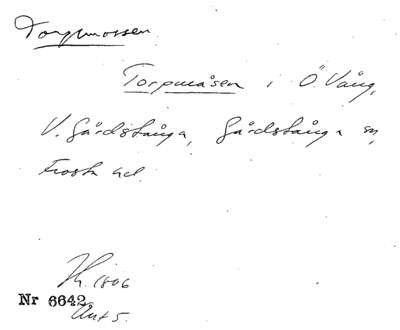 Torpmossen
Torpmåsen i Ö. Vång,
V. Gårdstånga, Gårdstånga sn,
Frosta hd.
1806
Nr 6642
Akt 5.